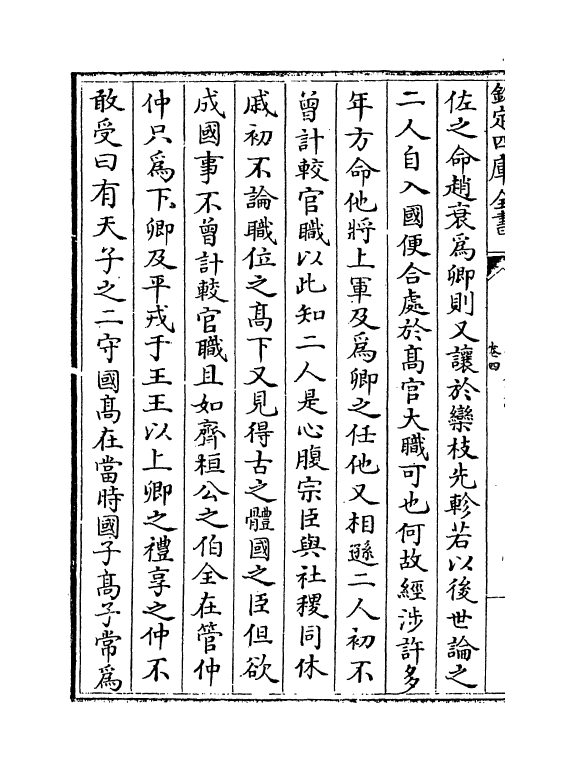 欽定四庫全書
卷四
佐之命趙衰爲卿則又讓於欒枝先軫若以後世論之
二人自入國便合處於髙官大職可也何故經涉許多
年方命他將上軍及爲卿之任他又相遜二人初不
曾計較官職以此知二人是心腹宗臣與社稷同休
戚初不論職位之髙下又見得古之體國之臣但欲
成國事不曾計較官職且如齊桓公之伯全在管仲
仲只爲下卿及平戎于王王以上卿之禮享之仲不
敢受曰有天子之二守國髙在當時國子髙子常爲